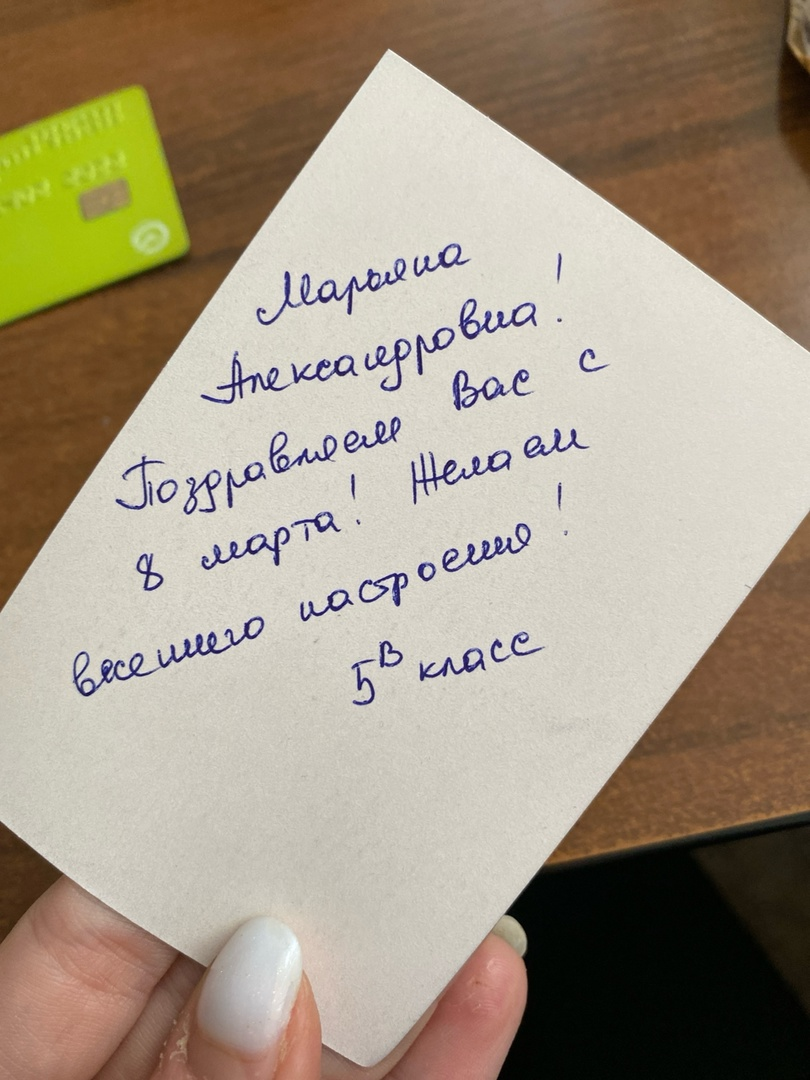 Марьяна
Александровна!
Поздравляем Вас с
8 марта! Желаем
весеннего настроения!
5В класс